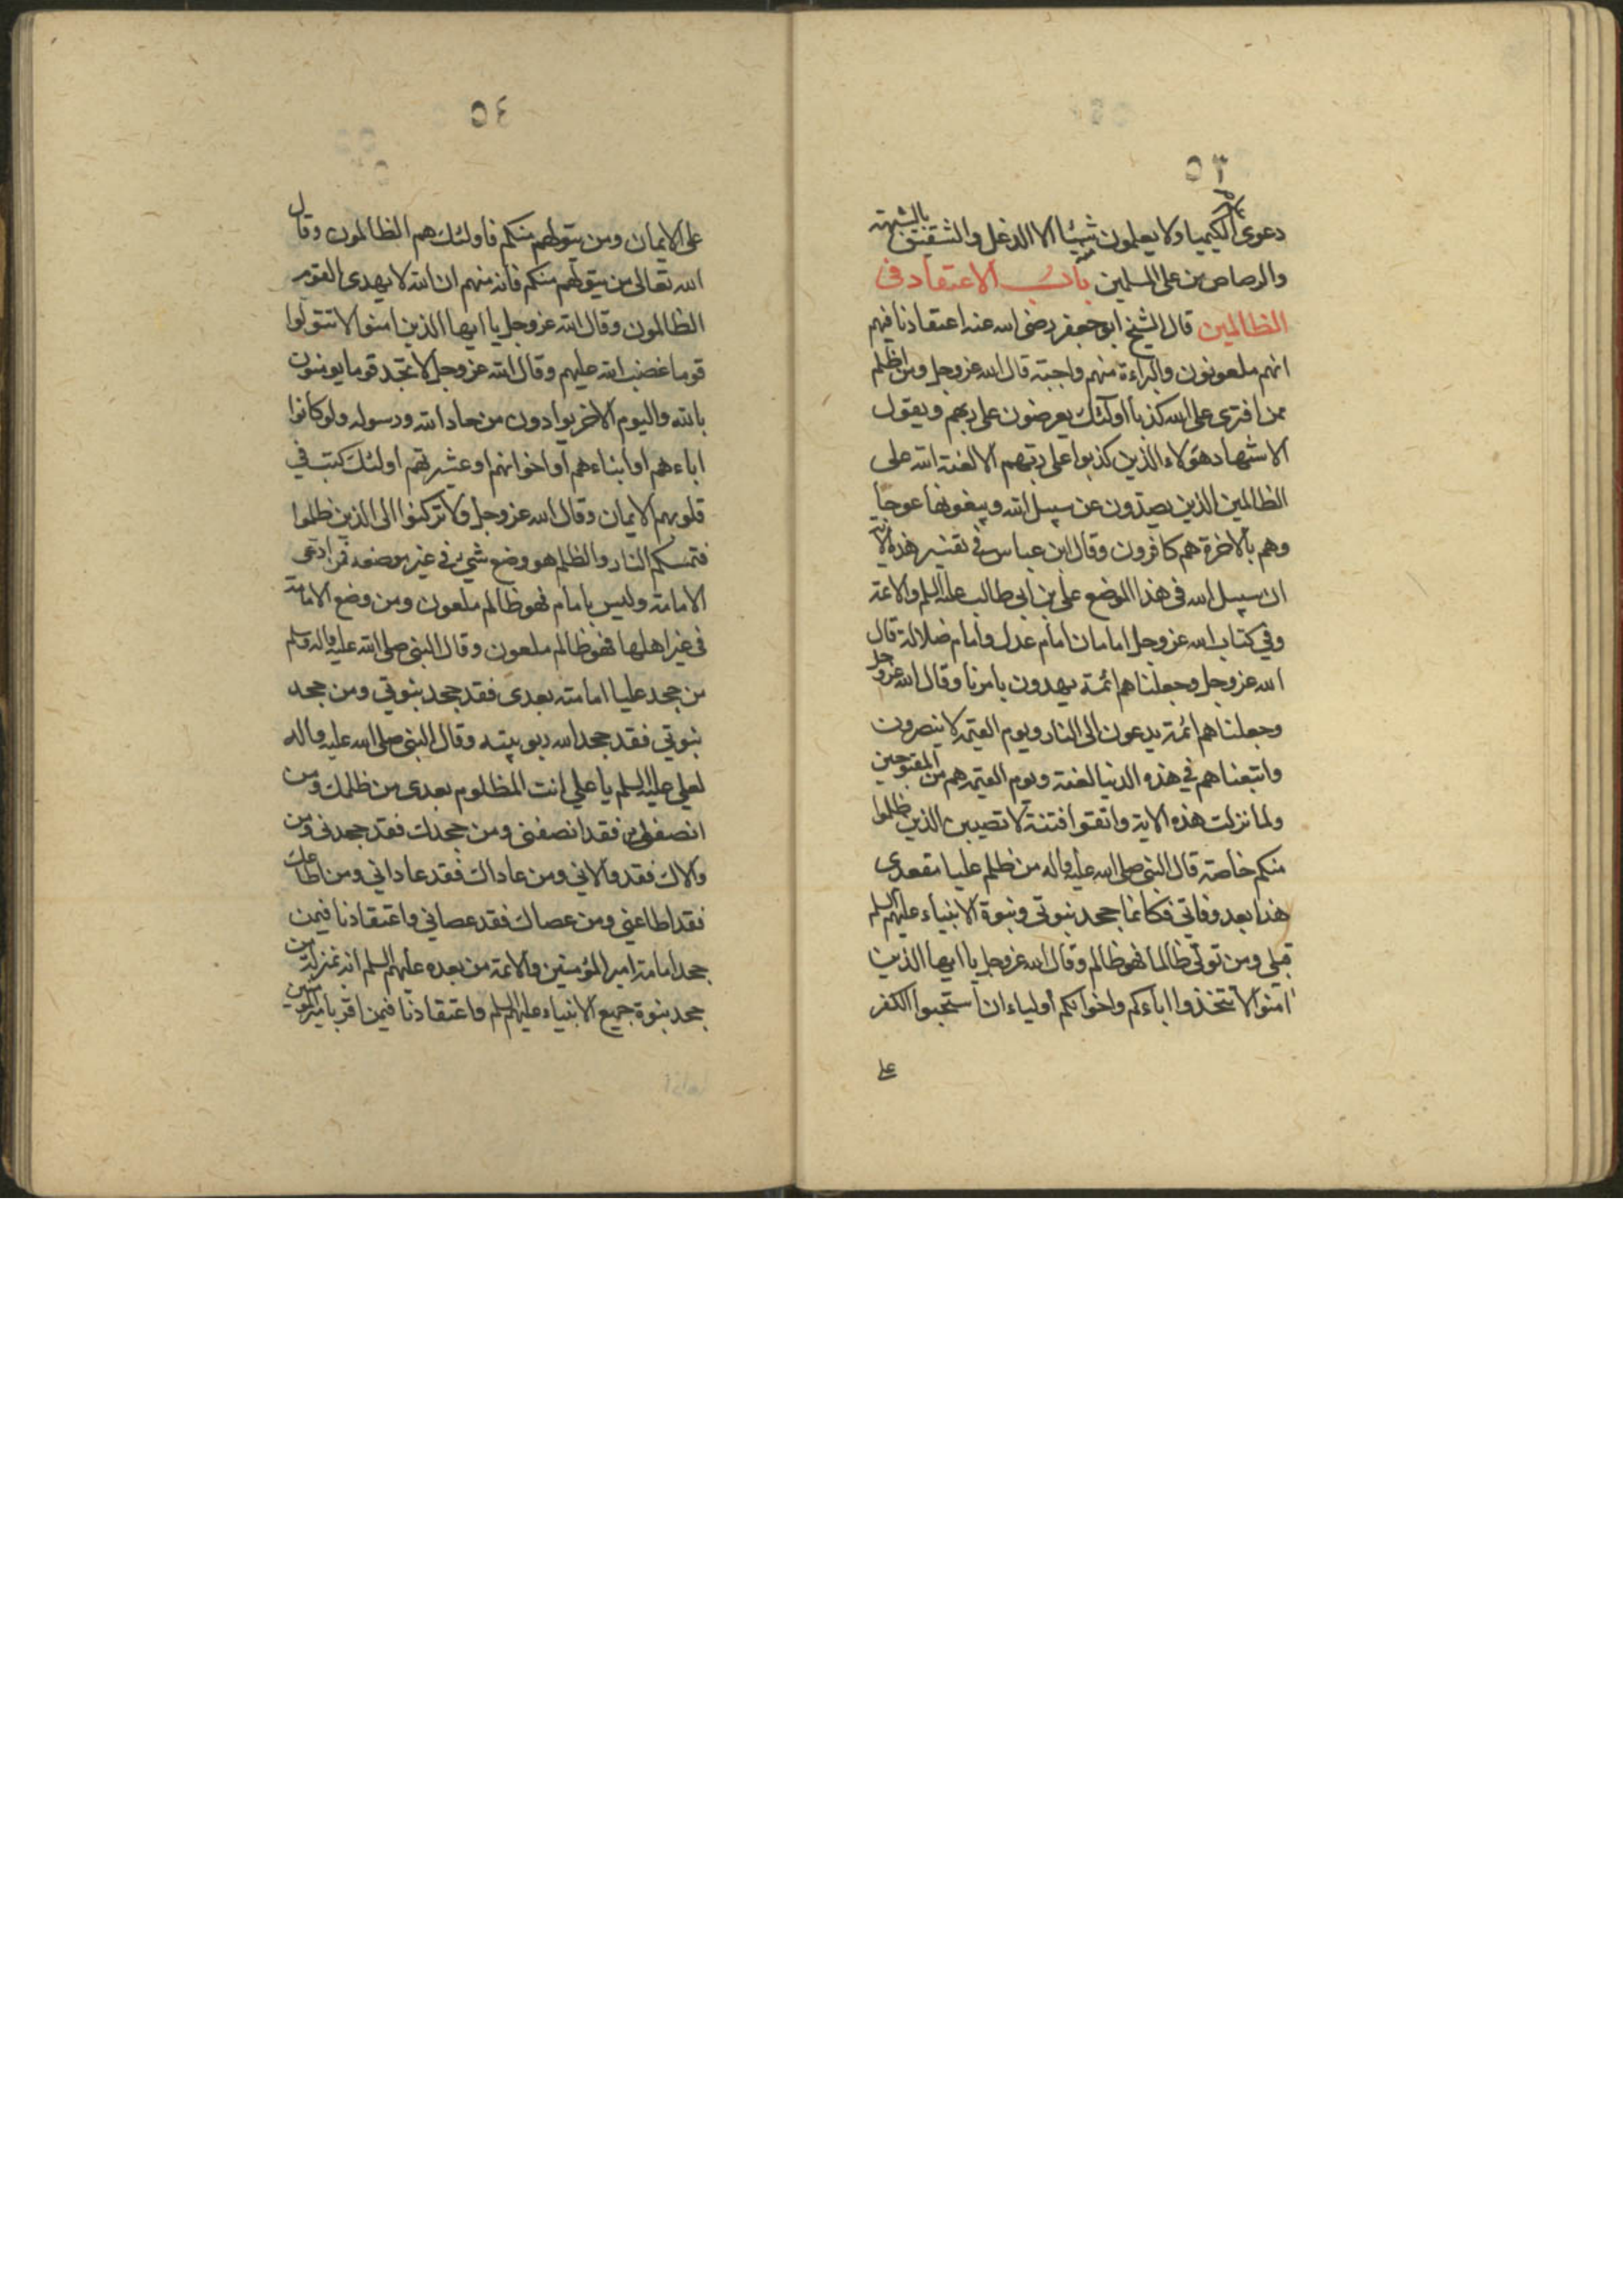 ٥٣
دعوى الكيميا ولا يعلمون شيئا الا الدغل والتنفيق بالشبه
والرصاص من على المسلمين باب الاعتقاد في
الظالمين قال الشيخ ابو جعفر رضى الله عنه اعتقادنا فيهم
انهم ملعونون والبراءة منهم واجبة قال الله عز وجل ومن اظلم
ممن افترى على الله كذبا اولئك يعرضون على ربهم ويقول
الاشهاد هؤلاء الذين كذبوا على ربهم الا لعنة الله على
الظالمين الذين يصدون عن سبيل الله ويبغونها عوجا
وهم بالاخرة هم كافرون وقال ابن عباس في تفسير هذه الاية
ان سبيل الله في هذا الموضع على بن ابى طالب عليه السلم والائمة
وفي كتاب الله عز وجل امامان امام عدل وامام ضلالة قال
الله عز وجل وجعلناهم ائمة يهدون بامرنا وقال الله عز وجل
وجعلناهم ائمة يدعون الى النار ويوم القيمة لا ينصرون
واتبعناهم في هذه الدنيا لعنة ويوم القيمة هم من المقبوحين
ولما نزلت هذه الاية واتقوا فتنة لا تصيبن الذين ظلموا
منكم خاصة قال النبى صلى الله عليه واله من ظلم عليا مقعدى
هذا بعد وفاتي فكانما جحد نبوتي ونبوة الانبياء عليهم السلم
قبلى ومن تولى ظالما فهو ظالم وقال الله عز وجل يا ايها الذين
امنوا لا تتخذوا اباءكم واخوانكم اولياء ان استحبوا الكفر
على
٥٤
على الايمان ومن يتولهم منكم فاولئك هم الظالمون وقال
الله تعالى من يتولهم منكم فانه منهم ان الله لا يهدى القوم
الظالمون وقال الله عز وجل يا ايها الذين امنوا لا تتولوا
قوما غضب الله عليهم وقال الله عز وجل لا تجد قوما يومنون
بالله واليوم الاخر يوادون من حاد الله ورسوله ولو كانوا
اباءهم او ابناءهم او اخوانهم او عشيرتهم اولئك كتب في
قلوبهم الايمان وقال الله عز وجل ولا تركنوا الى الذين ظلموا
فتمسكم النار والظلم هو وضع شيء في غير موضعه فمن ادعى
الامامة وليس بامام فهو ظالم ملعون ومن وضع الامامة
في غير اهلها فهو ظالم ملعون وقال النبى صلى الله عليه واله وسلم
من جحد عليا امامته بعدى فقد جحد نبوتي ومن جحد
نبوتي فقد جحد الله ربوبيته وقال النبى صلى الله عليه واله
لعلى عليه السلم يا على انت المظلوم بعدى من ظلمك ومن
انصفك فقد انصفنى ومن جحدك فقد جحدنى ومن
والاك فقد والاني ومن عاداك فقد عاداني ومن اطاعك
فقد اطاعني ومن عصاك فقد عصاني واعتقادنا فيمن
جحد امامة امير المؤمنين والائمة من بعده عليهم السلم انه بمنزلة من
جحد نبوة جميع الانبياء عليهم السلم واعتقادنا فيمن اقر بامير المومنين